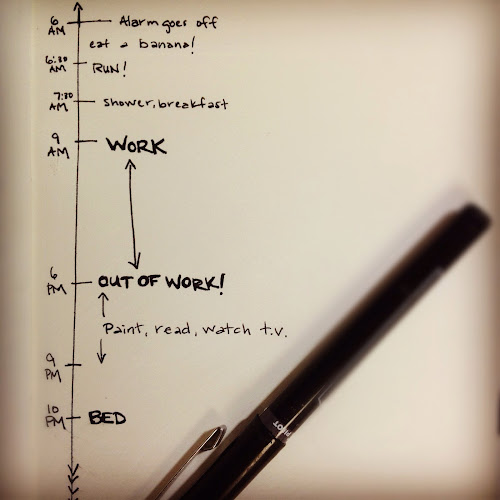 6 AM Alarm goes off
eat a banana!
6:30 AM RUN!
7:30 AM shower, breakfast
9 AM WORK
6 PM OUT OF WORK!
Paint, read, watch t.v.
9 PM
10 PM BED
PILOT